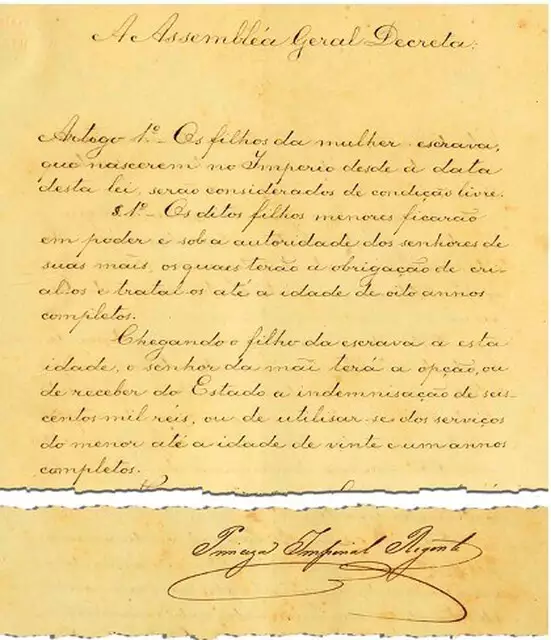 A Assembléa Geral Decreta:
Artogo 1.º - Os filhos da mulher escrava,
que nascerem no Imperio desde a data
desta lei, serão considerados de condição livre.
§. 1º - Os ditos filhos menores ficarão
em poder e sob a autoridade dos senhores de
suas mãis, os quaes terão a obrigação de cri-
al-os e tratal-os até a idade de oito annos
completos.
Chegando o filho da escrava a esta
idade, o senhor da mãi terá a opção, ou
de receber do Estado a indemnisação de seis-
centos mil reis, ou de utilisar-se dos serviços
do menor até a idade de vinte e um annos
completos.
Princeza Imperial Regente